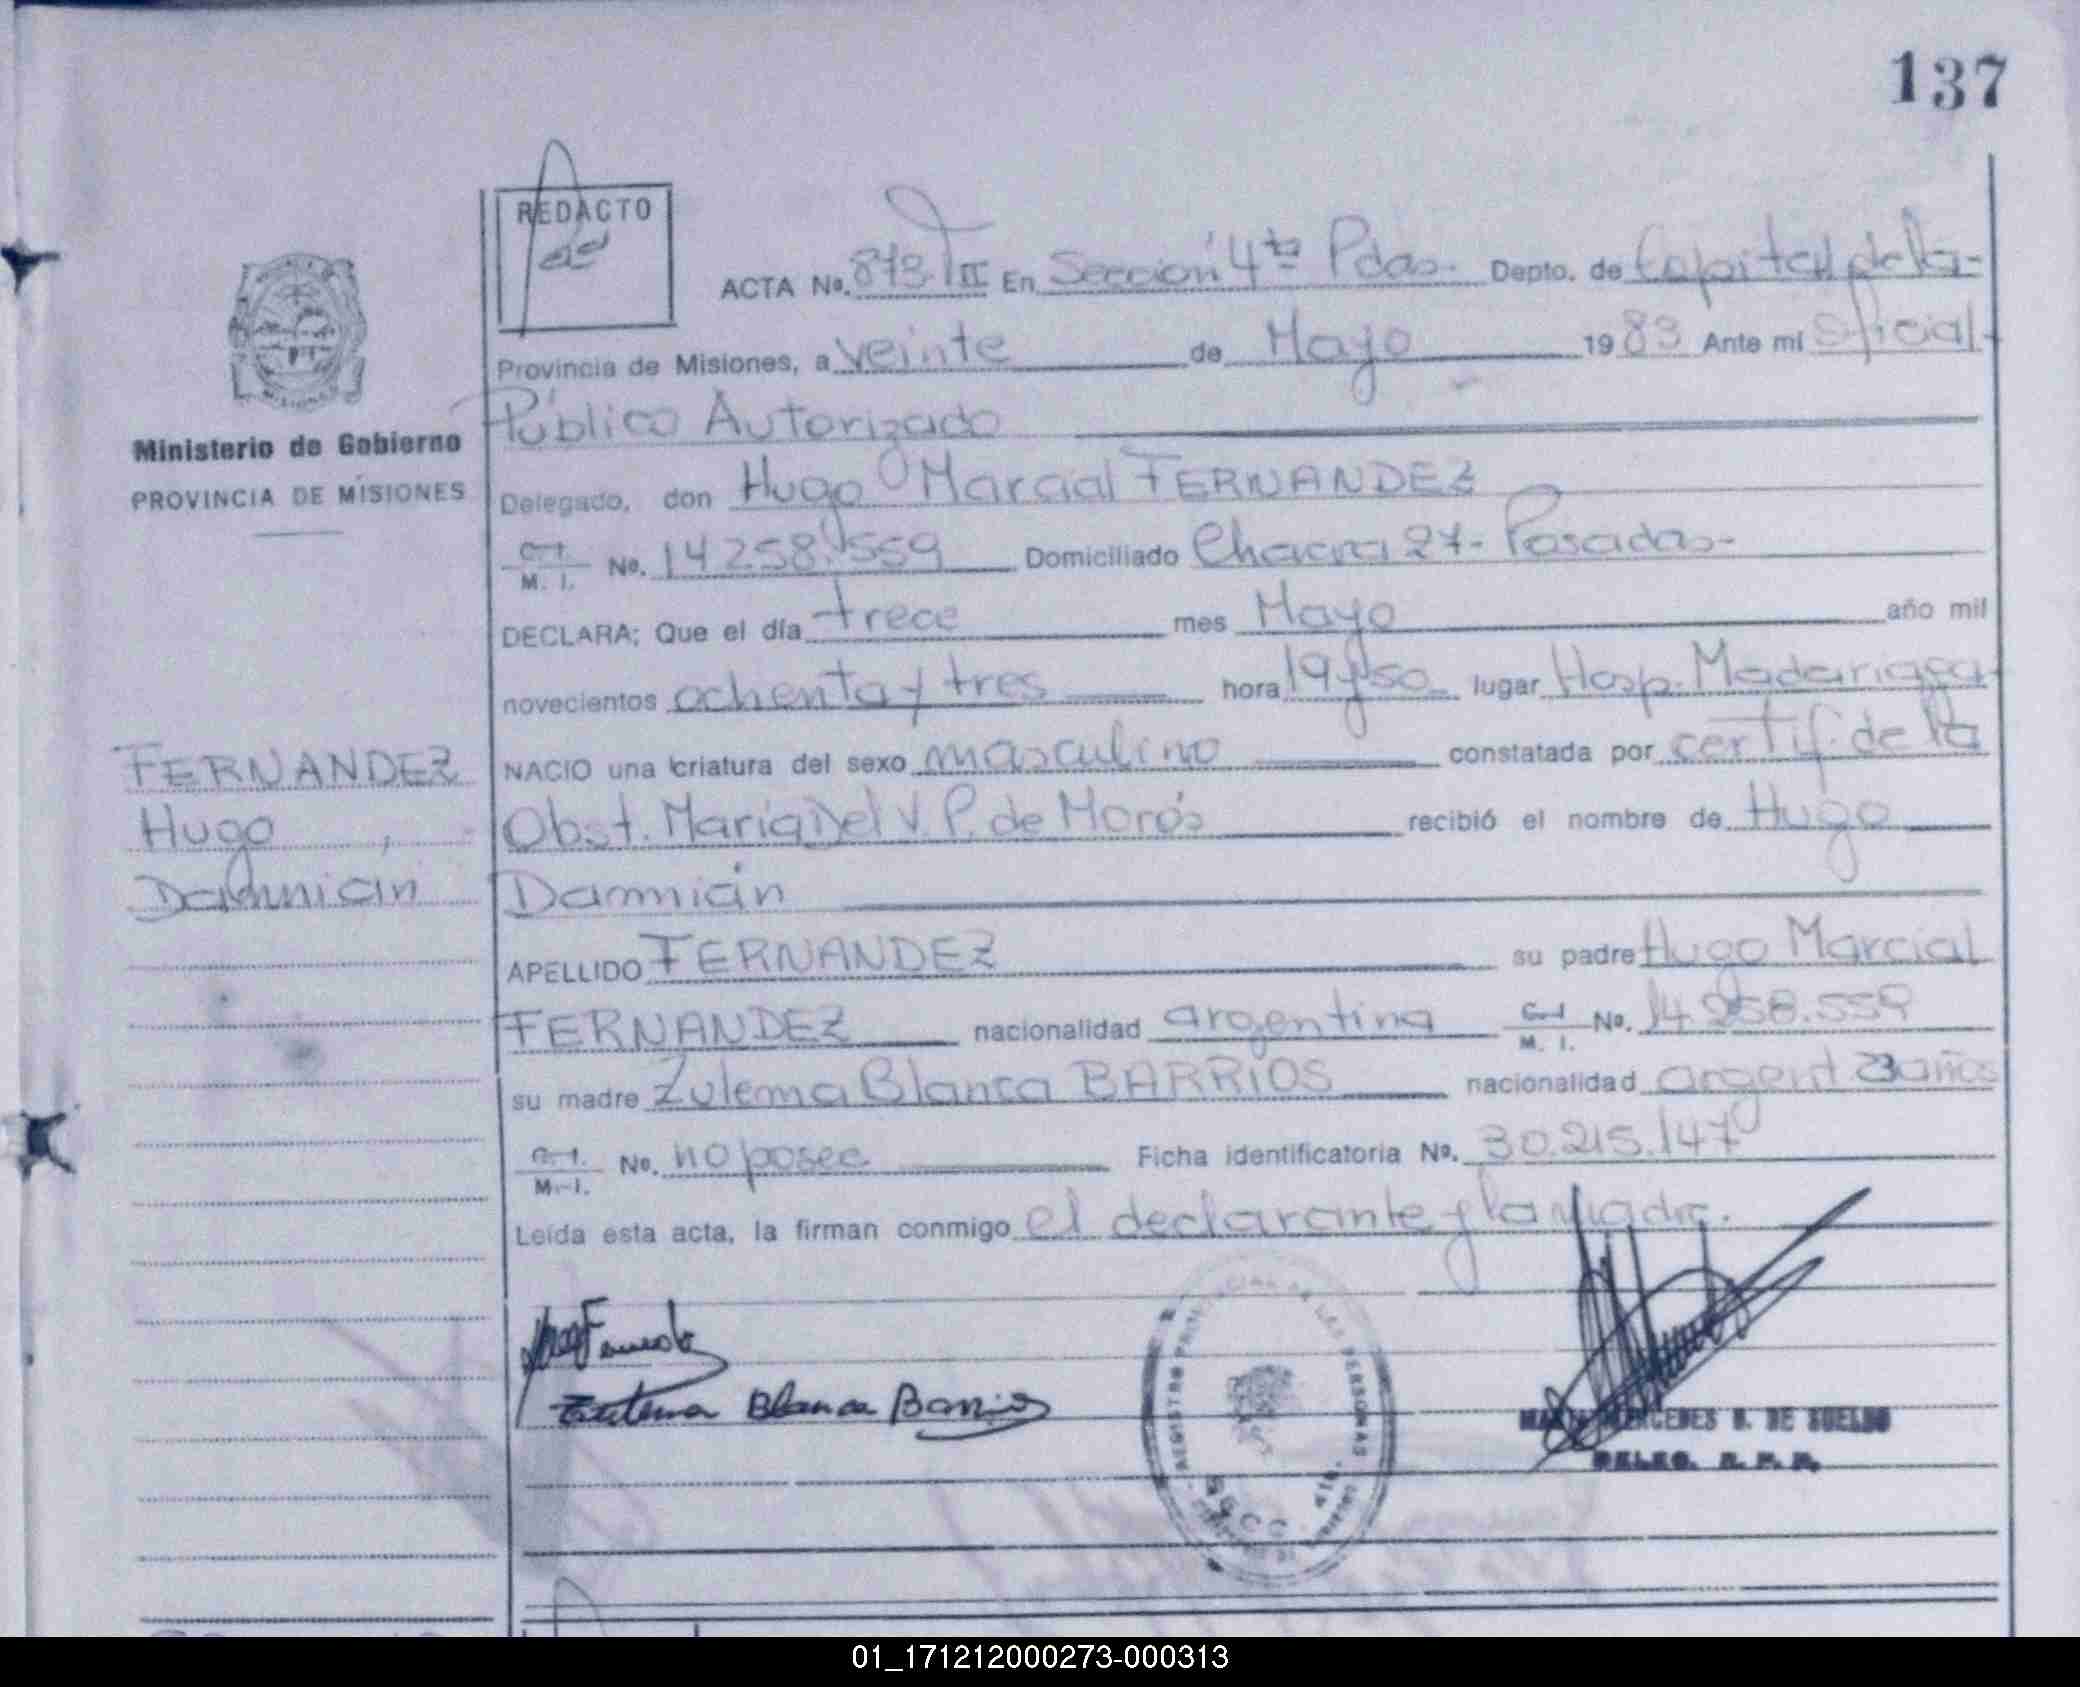 137
REDACTO
ACTA No. 873 T II En Sección 4ta Pdas. Depto. de Capital de la
Provincia de Misiones, a veinte de Mayo 1983 Ante mi Oficial
Público Autorizado
Ministerio de Gobierno
PROVINCIA DE MISIONES
Delegado, don Hugo Marcial FERNANDEZ
C. I.
M. I. No. 14.258.559 Domiciliado Chacra 27- Posadas-
DECLARA; Que el día trece mes Mayo año mil
novecientos ochenta y tres hora 19 y 50 lugar Hosp. Madariaga
FERNANDEZ
Hugo
Dammián
NACIO una criatura del sexo masculino constatada por certif. de la
Obst. María Del V. P. de Morós recibió el nombre de Hugo
Dammián
APELLIDO FERNANDEZ su padre Hugo Marcial
FERNANDEZ nacionalidad argentina C. I.
M. I. No. 14.258.559
su madre Zulema Blanca BARRIOS nacionalidad argent años
C. I.
M. I. No. no posee Ficha identificatoria No. 30.215.147
Leída esta acta, la firman conmigo el declarante y la madre.
Zulema Blanca Barrios
REGISTRO PROVINCIAL DE LAS PERSONAS
SECC. 4ta.
MERCEDES DE SUELDO
DELEG. R. P. P.
01_171212000273-000313